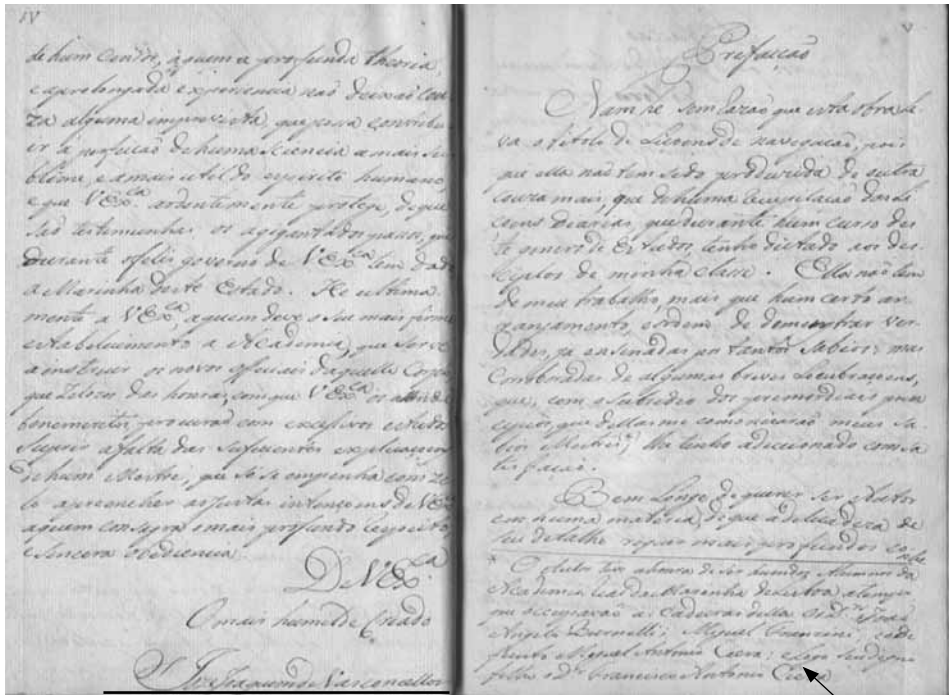 IV
de hum Condor, a quem a profunda theoria,
e a prolongada experiencia não deixão cou-
za alguma imprevista, que possa contribu-
ir á perfeição de huma Sciencia a mais su-
blime, e a mais util do espirito humano,
e que V Ex.ca ardentemente protege, de que
são testimunhas os agigantados passos, que
durante o feliz governo de V Ex.ca tem dado
a Marinha deste Estado. He ultima-
mente a V Ex.ca, a quem deve o seu mais firme
estabelecimento a Academia, que serve
a instruir os novos officiaes daquelle Corpo,
que zelozos das honras, com que V Ex.ca os
benemeritos, procurão com excessivos estudos
suprir a falta das suficientes explicaçoens
de hum Mestre, que só se empenha com ze-
lo a preencher as justas intençoens de V Ex.ca
a quem consagra o mais profundo respeito,
e sincera obediencia.
De V Ex.ca
O mais humilde Criado
Joze Joaquim de Vasconcellos
V
Prefação
Nam he sem razão que esta obra le-
va o titolo de Licoens de navegação, pois
que ella não tem sido produzida de outra
couza mais, que de huma compelação das li-
coens diarias, que durante hum curso des-
te genero de Estudos, tenho dictado aos des-
cipolos de minha classe. Ella não tem
de meu trabalho, mais que hum certo ar-
ranjamento, e ordem de demonstrar ver-
dades, já ensinadas por tantos Sabios; mas
corroboradas de algumas breves Lucubraçoens,
que, com o subsidio dos premordiaes prin-
cipios, que dellas me comonicarão meus Sa-
bios Mestres,* lhe tenho adiccionado com sa-
tisfação.
Bem longe de querer ser Autor
em huma materia, de que a delicadeza de
seu detalho requer mais profundos conhe-
* O Autor teve a honra de ser hum dos Alumnos da
Academia Real da Marinha de Lisboa, a tempo
que occupavão as Cadeiras della os D.res João
Angelo Brunelli; Miguel Franzini, e de-
funto Miguel Antonio Ciera; e com seu digno
filho o D.r Francisco Antonio Ciera